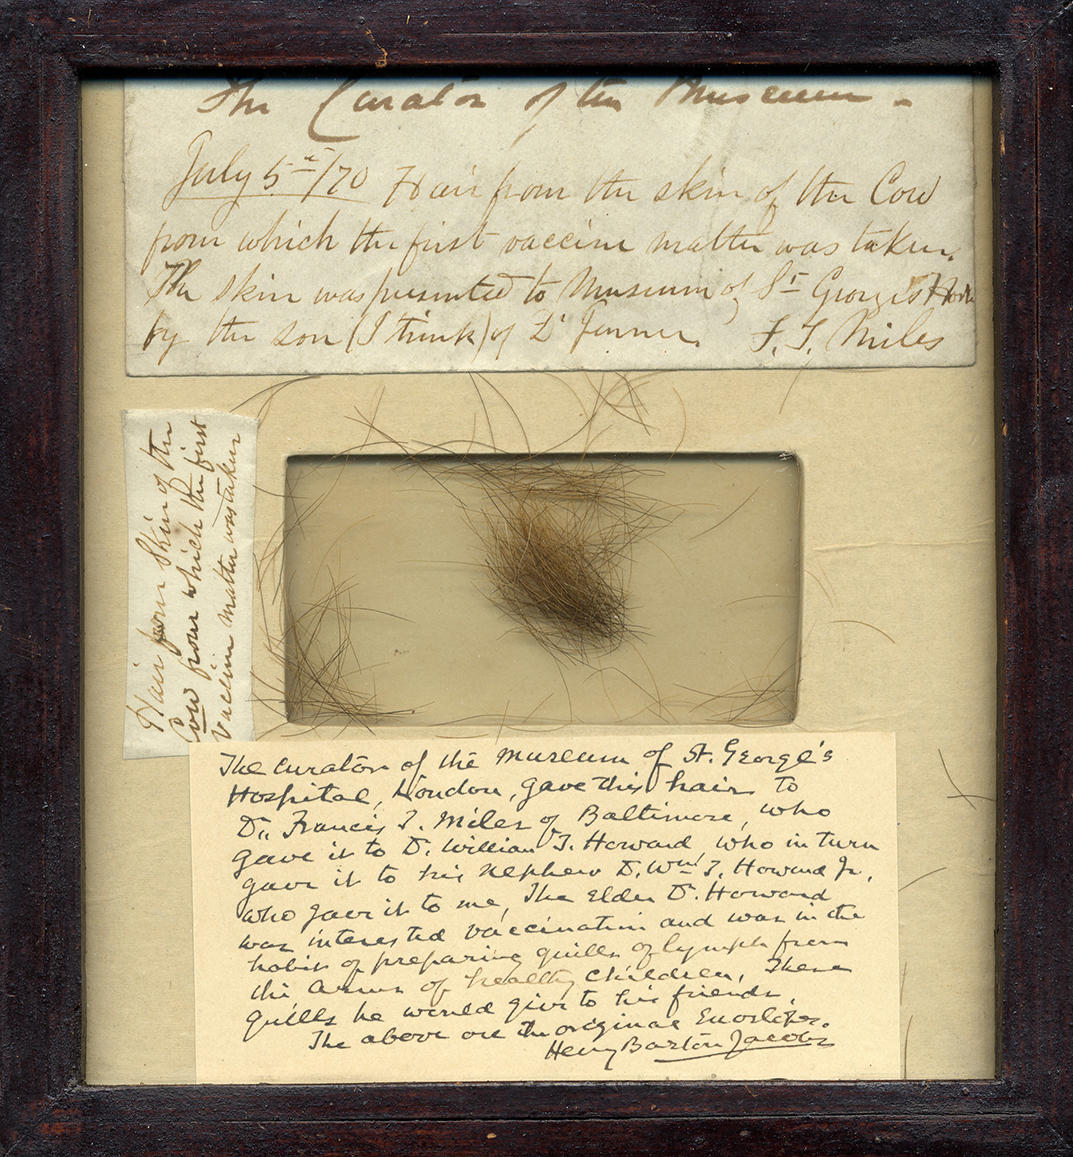 The Curator of the Museum.
July 5th/70 Hair from the skin of the Cow
from which the first vaccine matter was taken.
The skin was presented to Museum of St George's Hosp
by the son (I think) of Dr Jenner. F. T. Miles
Hair from Skin of the
Cow from which the first
Vaccine matter was taken
The curator of the Museum of St. George's
Hospital, London, gave this hair to
Dr. Francis T. Miles of Baltimore, who
gave it to Dr. William T. Howard, who in turn
gave it to his nephew Dr. Wm T. Howard Jr.
who gave it to me, The Elder Dr. Howard
was interested vaccination and was in the
habit of preparing quills of lymph from
the arms of healthy children, These
quills he would give to his friends.
The above are the original Envelopes.
Henry Barton Jacobs